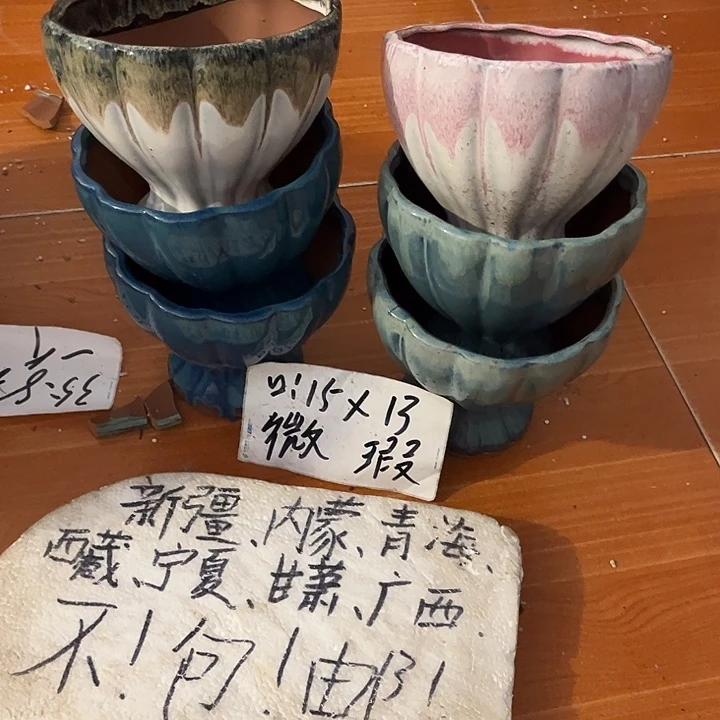 35.8
一个
口:15×13
微 瑕
新疆、内蒙、青海、
西藏、宁夏、甘萧、广西.
不!包!邮!